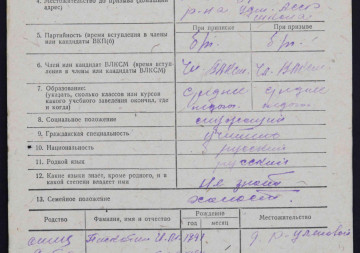 4. Местожительство до призыва (домашний
адрес)
р-на Удм. АССР
При приписке При призыве
5. Партийность (время вступления в члены
или кандидаты ВКП(б)
б/п. б/п.
6. Член или кандидат ВЛКСМ (время вступ-
ления в члены или кандидаты ВЛКСМ)
Чл. ВЛКСМ Чл. ВЛКСМ
7. Образование:
(указать, сколько классов или курсов
какого учебного заведения окончил, где
и когда)
среднее среднее
педаг. педаг.
8. Социальное положение
служащий
9. Гражданская специальность
учитель
10. Национальность
русский
11. Родной язык
русский
12. Какие языки знает, кроме родного, и в
какой степени владеет ими
Не знает
13. Семейное положение
холост
Родство Фамилия, имя и отчество Рождение Местожительство
год месяц
отец 1891